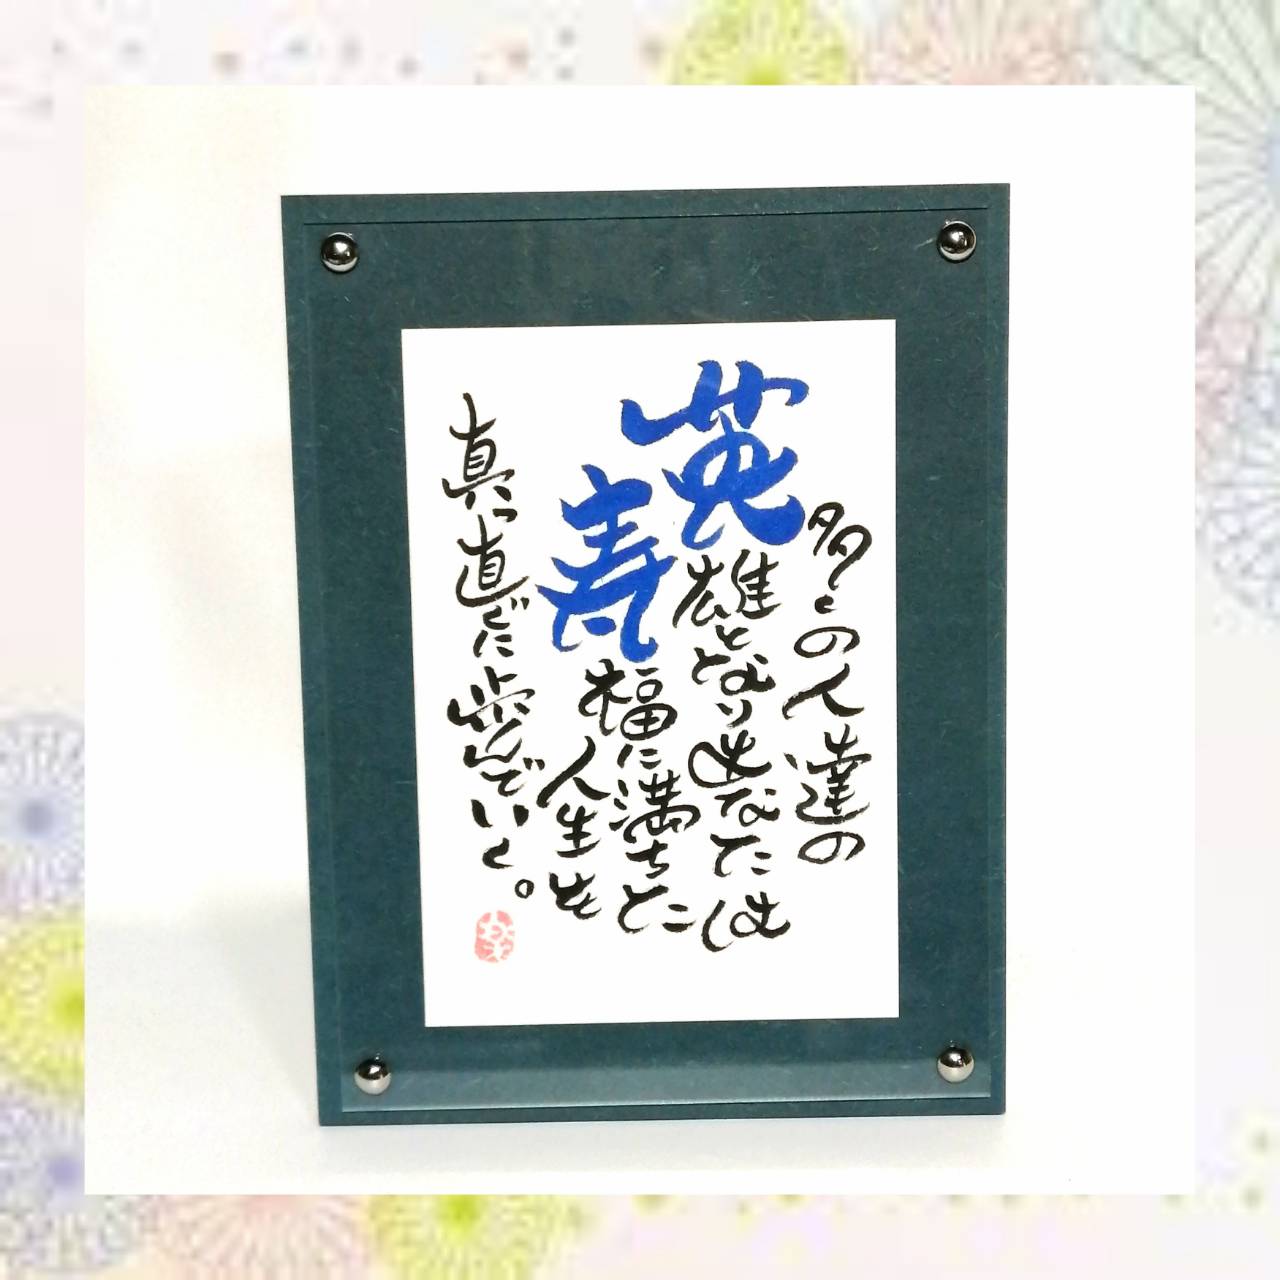 多くの人達の
英雄となりあなたは
寿福に満ちた
人生を
真っ直ぐに歩んでいく。